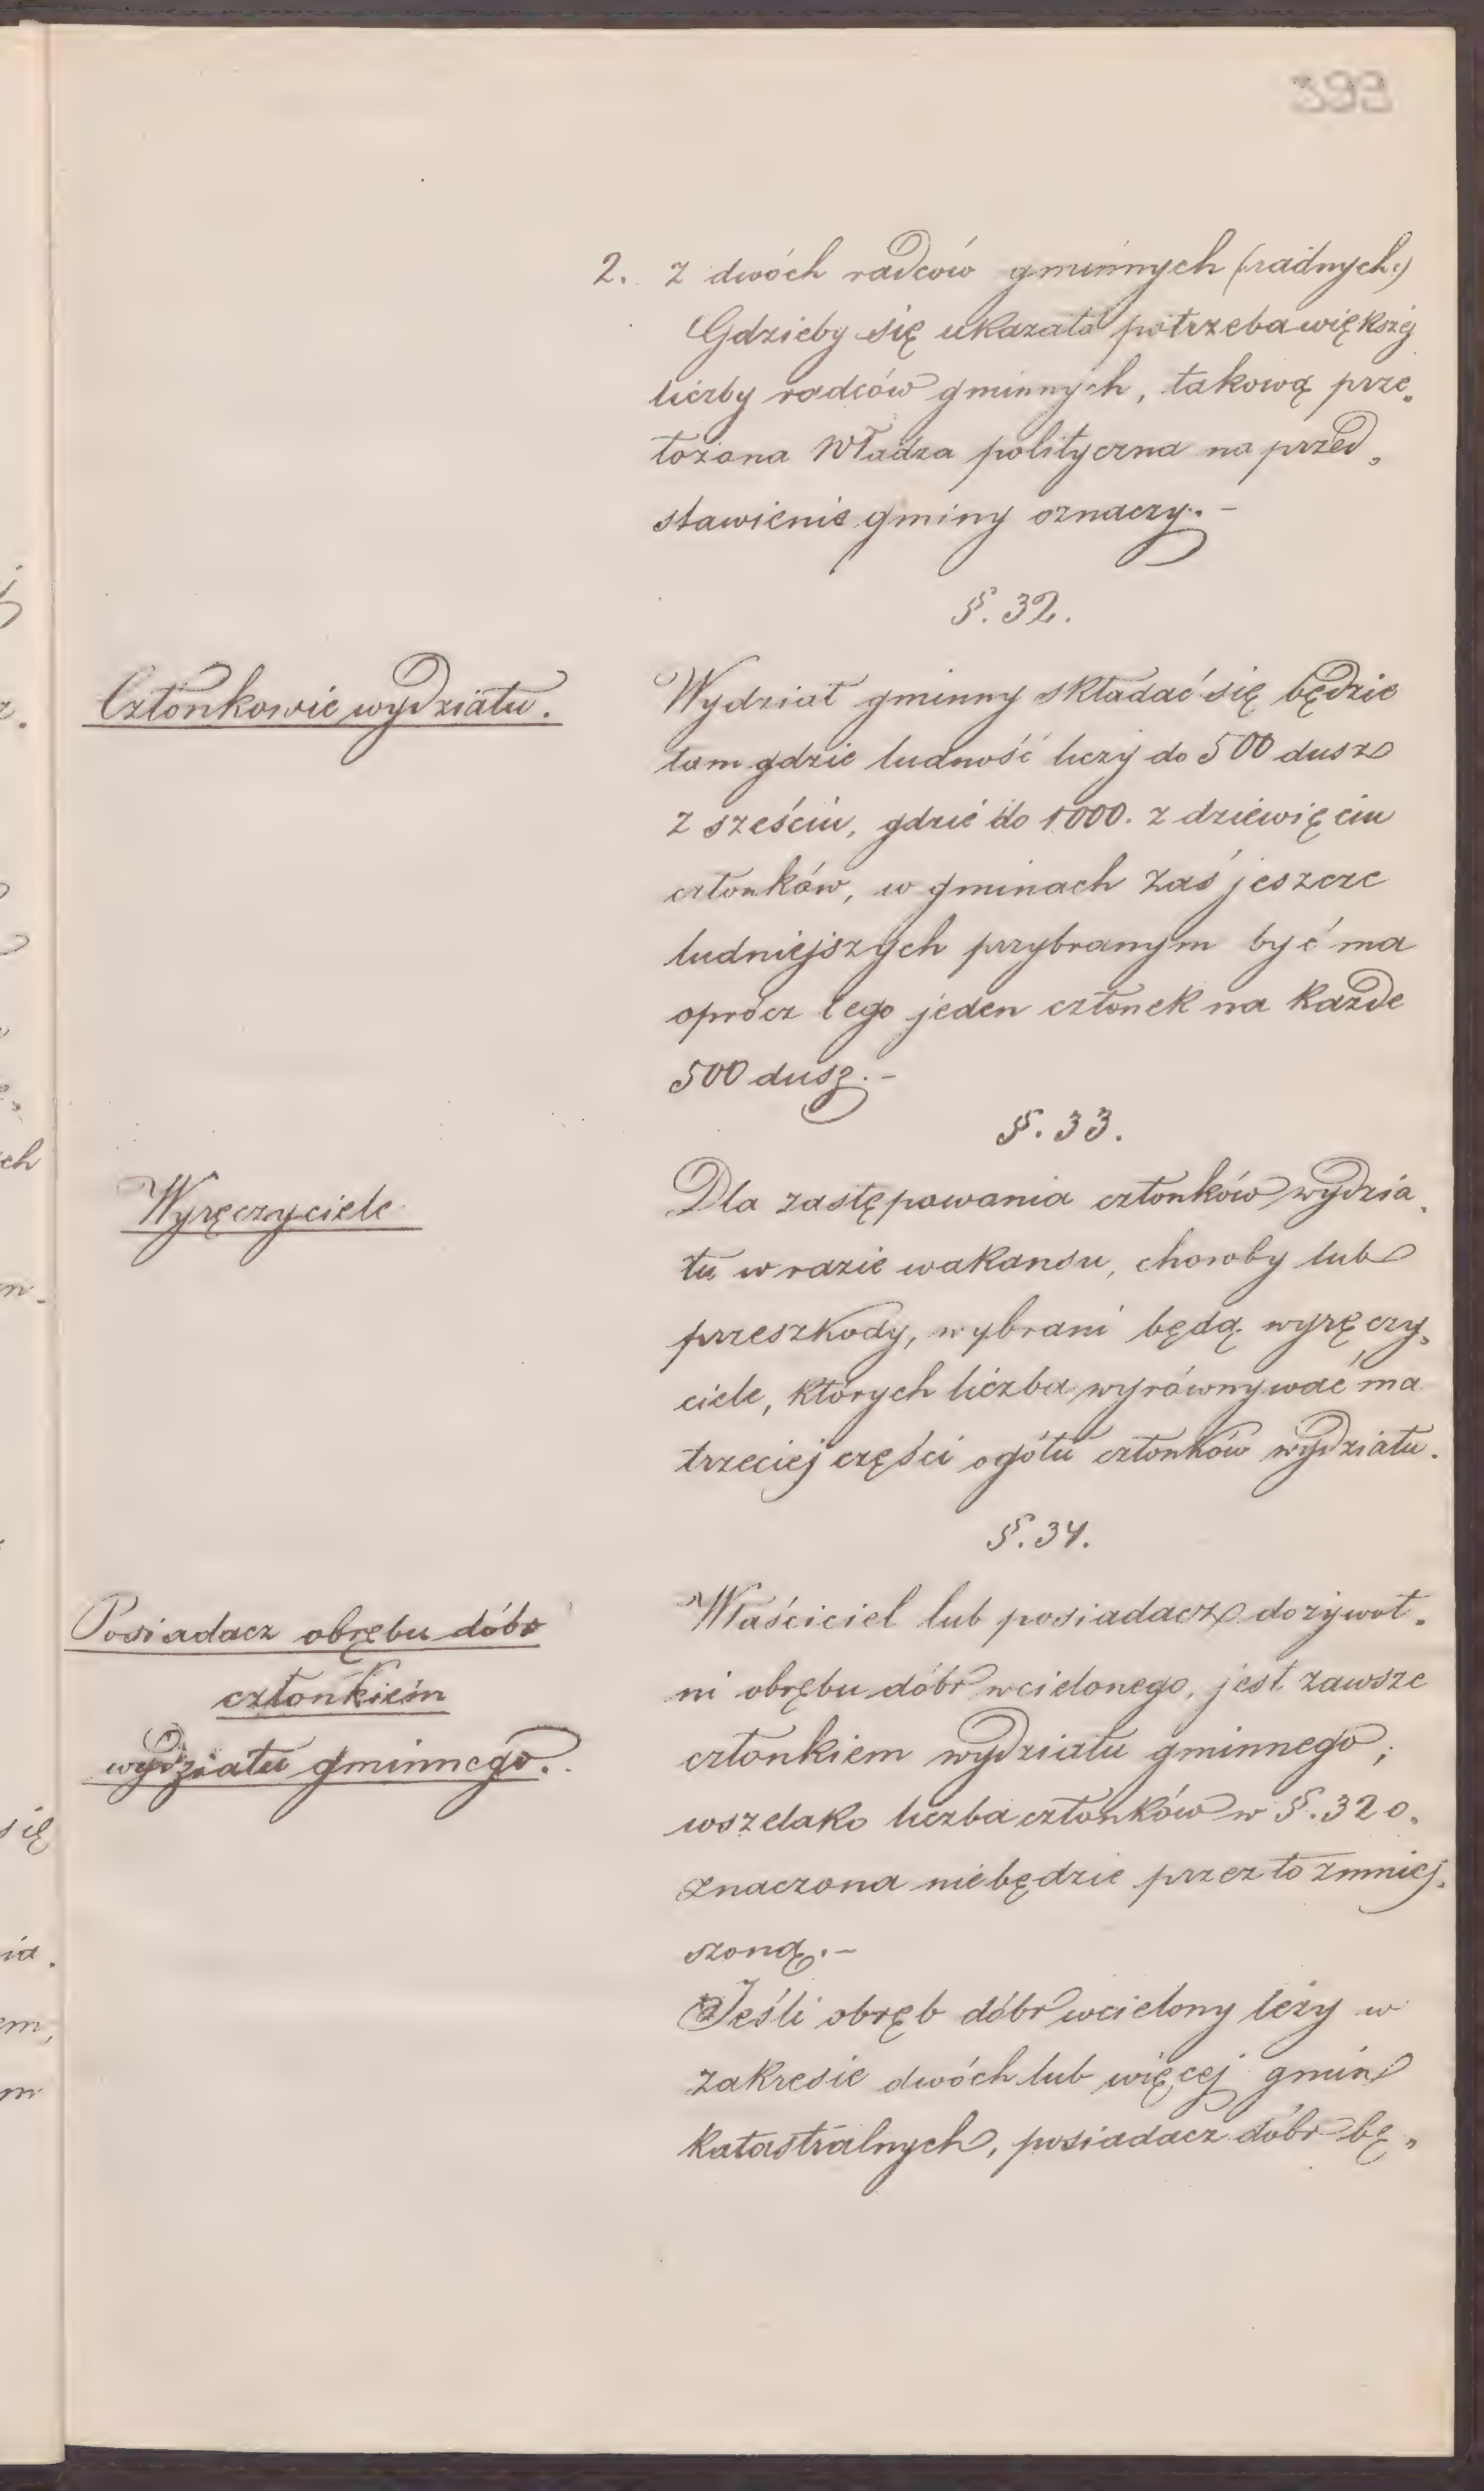 399
2. z dwóch radców gminnych (:radnych:)
Gdzieby się ukazała potrzeba większej
liczby radców gminnych, takową prze„
łożona Władza polityczna na przed„
stawienie gminy oznaczy.-
§. 32.
Członkowie wydziału.
Wydział gminny składać się będzie
tam gdzie ludność liczy do 500 dusz
z sześciu, gdzie do 1000. z dziewięciu
członków, w gminach zaś jeszcze
ludniejszych przybranym być ma
oprócz tego jeden członek na każde
500 dusz.-
§. 33.
Wyręczyciele
Dla zastępowania członków wydzia„
łu w razie wakansu, choroby lub
przeszkody, wybrani będą wyręczy„
ciele, których liczba wyrównywać ma
trzeciej części ogółu członków wydziału.
§. 34.
Posiadacz obrębu dóbr
członkiem
wydziału gminnego.
Właściciel lub posiadacz dożywot„
ni obrębu dóbr wcielonego, jest zawsze
członkiem wydziału gminnego;
wszelako liczba członków w §. 32 o„
znaczona niebędzie przez to zmniej„
szoną.-
Jeśli obręb dóbr wcielony leży w
zakresie dwóch lub więcej gmin
katastralnych, posiadacz dóbr bę„